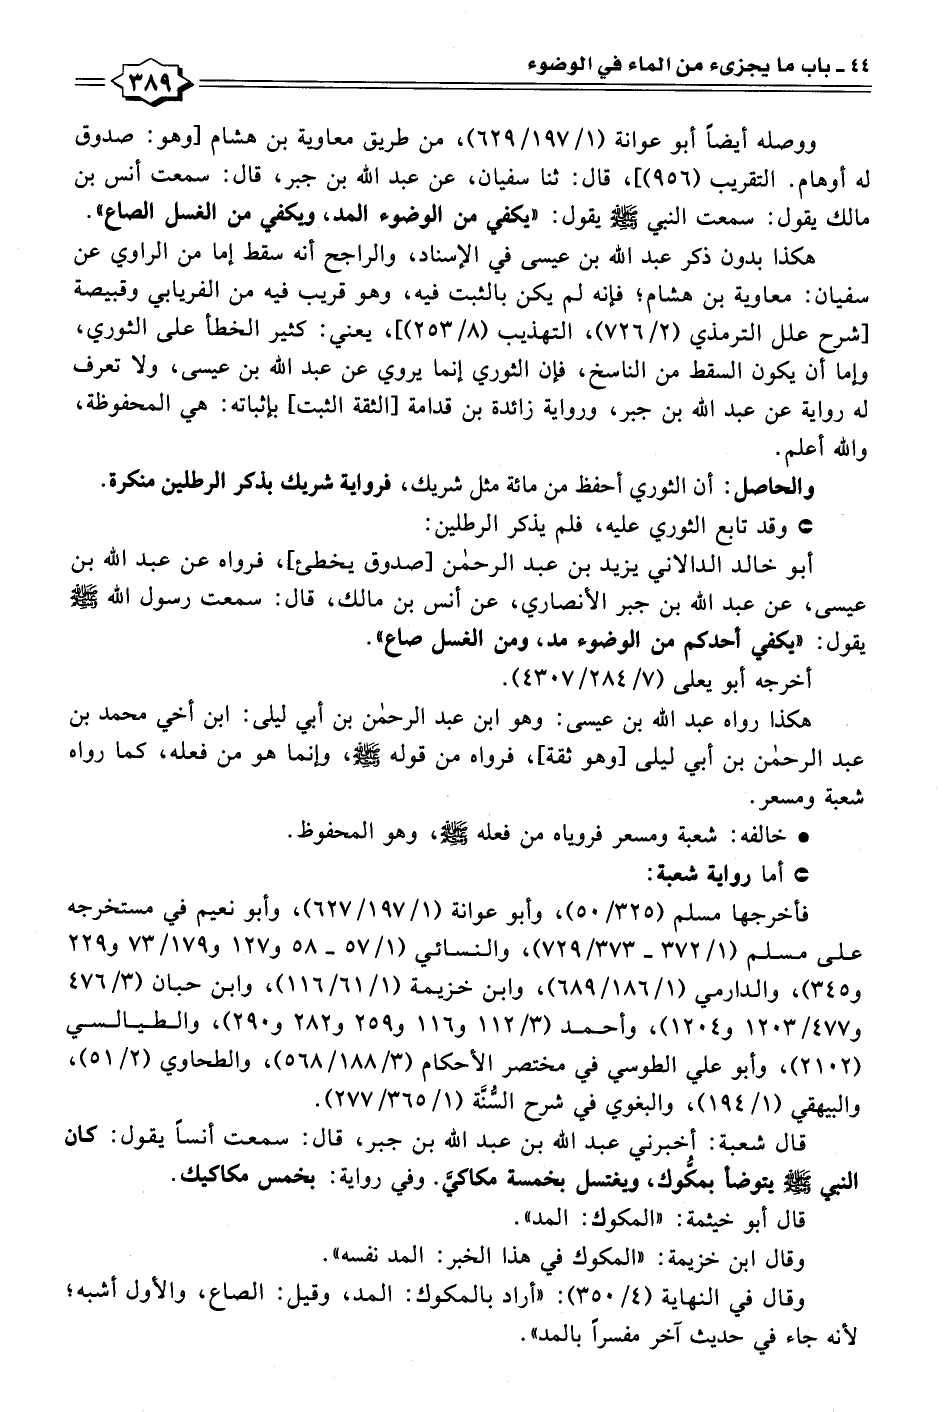 ٤٤ ـ باب ما يجزىء من الماء في الوضوء
٣٨٩
ووصله أيضاً أبو عوانة (١/ ١٩٧/ ٦٢٩)، من طريق معاوية بن هشام [وهو: صدوق
له أوهام. التقريب (٩٥٦)]، قال: ثنا سفيان، عن عبد الله بن جبر، قال: سمعت أنس بن
مالك يقول: سمعت النبي ﷺ يقول: «يكفي من الوضوء المد، ويكفي من الغسل الصاع».
هكذا بدون ذكر عبد الله بن عيسى في الإسناد، والراجح أنه سقط إما من الراوي عن
سفيان: معاوية بن هشام؛ فإنه لم يكن بالثبت فيه، وهو قريب فيه من الفريابي وقبيصة
[شرح علل الترمذي (٢/ ٧٢٦)، التهذيب (٨/ ٢٥٣)]، يعني: كثير الخطأ على الثوري،
وإما أن يكون السقط من الناسخ، فإن الثوري إنما يروي عن عبد الله بن عيسى، ولا تعرف
له رواية عن عبد الله بن جبر، ورواية زائدة بن قدامة [الثقة الثبت] بإثباته: هي المحفوظة،
والله أعلم.
والحاصل: أن الثوري أحفظ من مائة مثل شريك، فرواية شريك بذكر الرطلين منكرة.
⊂ وقد تابع الثوري عليه، فلم يذكر الرطلين:
أبو خالد الدالاني يزيد بن عبد الرحمٰن [صدوق يخطئ]، فرواه عن عبد الله بن
عيسى، عن عبد الله بن جبر الأنصاري، عن أنس بن مالك، قال: سمعت رسول الله ﷺ
يقول: «يكفي أحدكم من الوضوء مد، ومن الغسل صاع».
أخرجه أبو يعلى (٧/ ٢٨٤/ ٤٣٠٧).
هكذا رواه عبد الله بن عيسى: وهو ابن عبد الرحمٰن بن أبي ليلى: ابن أخي محمد بن
عبد الرحمٰن بن أبي ليلى [وهو ثقة]، فرواه من قوله ﷺ، وإنما هو من فعله، كما رواه
شعبة ومسعر.
• خالفه: شعبة ومسعر فروياه من فعله ﷺ، وهو المحفوظ.
⊂ أما رواية شعبة:
فأخرجها مسلم (٣٢٥/ ٥٠)، وأبو عوانة (١/ ١٩٧/ ٦٢٧)، وأبو نعيم في مستخرجه
على مسلم (١/ ٣٧٢ ـ ٣٧٣/ ٧٢٩)، والنسائي (١/ ٥٧ ـ ٥٨ و١٢٧ و١٧٩/ ٧٣ و٢٢٩
و٣٤٥)، والدارمي (١/ ١٨٦/ ٦٨٩)، وابن خزيمة (١/ ٦١/ ١١٦)، وابن حبان (٣/ ٤٧٦
و٤٧٧/ ١٢٠٣ و١٢٠٤)، وأحمد (٣/ ١١٢ و١١٦ و٢٥٩ و٢٨٢ و٢٩٠)، والطيالسي
(٢١٠٢)، وأبو علي الطوسي في مختصر الأحكام (٣/ ١٨٨/ ٥٦٨)، والطحاوي (٢/ ٥١)،
والبيهقي (١/ ١٩٤)، والبغوي في شرح السُّنَّة (١/ ٣٦٥/ ٢٧٧).
قال شعبة: أخبرني عبد الله بن عبد الله بن جبر، قال: سمعت أنساً يقول: كان
النبي ﷺ يتوضأ بمكُّوك، ويغتسل بخمسة مكاكيَّ. وفي رواية: بخمس مكاكيك.
قال أبو خيثمة: «المكوك: المد».
وقال ابن خزيمة: «المكوك في هذا الخبر: المد نفسه».
وقال في النهاية (٤/ ٣٥٠): «أراد بالمكوك: المد، وقيل: الصاع، والأول أشبه؛
لأنه جاء في حديث آخر مفسراً بالمد».